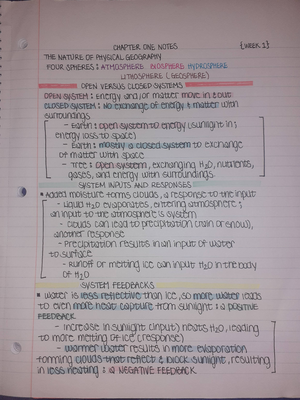 CHAPTER ONE NOTES {WEEK 1}
THE NATURE OF PHYSICAL GEOGRAPHY
FOUR SPHERES: ATMOSPHERE BIOSPHERE HYDROSPHERE
LITHOSPHERE (GEOSPHERE)
OPEN VERSUS CLOSED SYSTEMS
OPEN SYSTEM: energy and/or matter move in & out
CLOSED SYSTEM: No exchange of energy & matter with
surroundings
- Earth: open system to energy (sunlight in;
energy loss to space)
- Earth: mostly a closed system to exchange
of matter with space
- Tree: open system, exchanging H2O, nutrients,
gases, and energy with surroundings.
SYSTEM INPUTS AND RESPONSES
• Added moisture forms clouds, a response to the input
- Liquid H2O evaporates, entering atmosphere;
an input to the atmosphere is system
- clouds can lead to precipitation (rain or snow),
another response
- Precipitation results in an input of water
to surface
- Runoff or melting ice can input H2O in the body
of H2O
SYSTEM FEEDBACKS
• Water is less reflective than ice, so more water leads
to even more heat capture from sunlight: a POSITIVE
FEEDBACK
- Increase in sunlight (input) heats H2O, leading
to more melting of ice (response)
- Warmer water results in more evaporation
forming clouds that reflect & block sunlight, resulting
in less heating: a NEGATIVE FEEDBACK